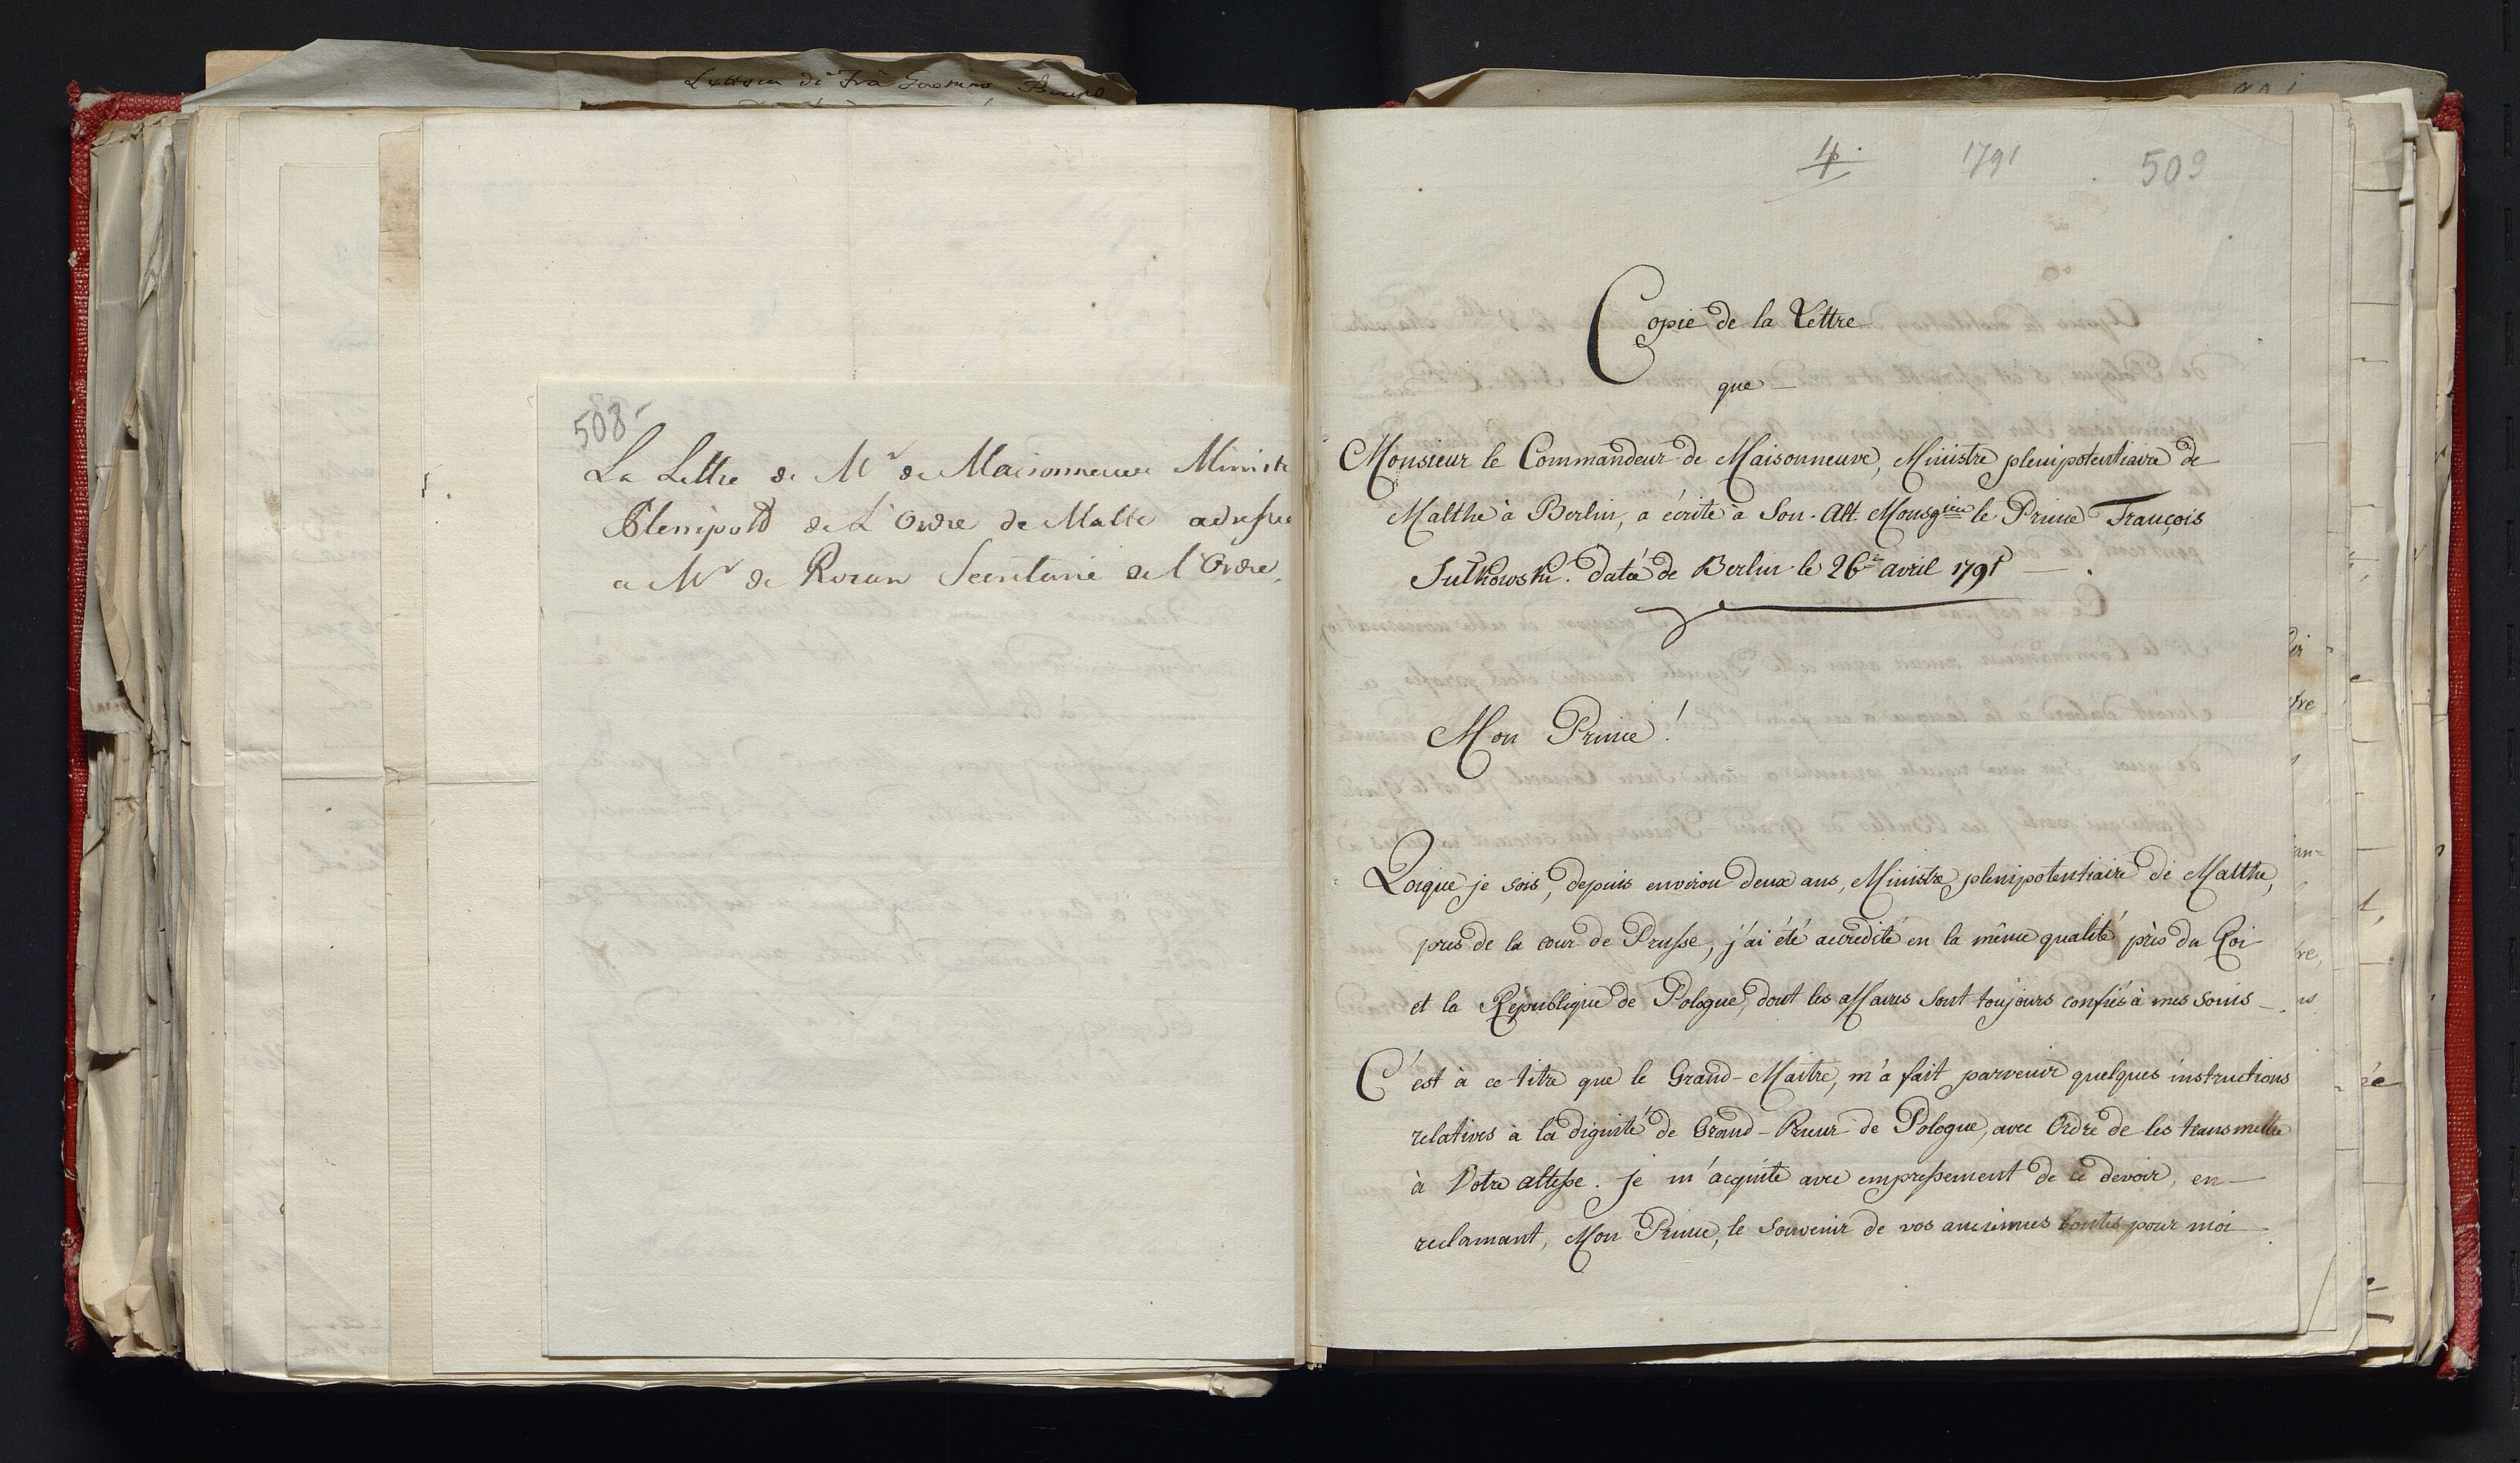 Lettera di Frà
508
La Lettre de Mr de Maisonneuve Ministr
Plenipotd de L'Ordre de Malte adressée
a Mr de Rozan Secretaire de l'Ordre.
4. 1791 509
Copie de la Lettre
que —
Monsieur le Commandeur de Maisonneuve, Ministre plenipotentiaire de
Malthe à Berlin, a écrite à Son. Alt. Monsgieur le Prince François
Sulkowski. datée de Berlin le 26e avril 1791 — .
Mon Prince!
Qoique je sois, depuis environ deux ans, Ministre plenipotentiaire de Malthe,
pres de la cour de Prusse, j'ai été accredité en la même qualité près du Roi
et la Republique de Pologne, dont les affaires sont toujours confiés à mes soins — .
C'est à ce titre que le Grand-Maitre, m'a fait parvenir quelques instructions
relatives à la dignité de Grand-Prieur de Pologne, avec Ordre de les transmettre
à Votre altesse. je m'acquite avec empressement de ce devoir, en —
reclamant, Mon Prince, le souvenir de vos anciennes bontés pour moi — .